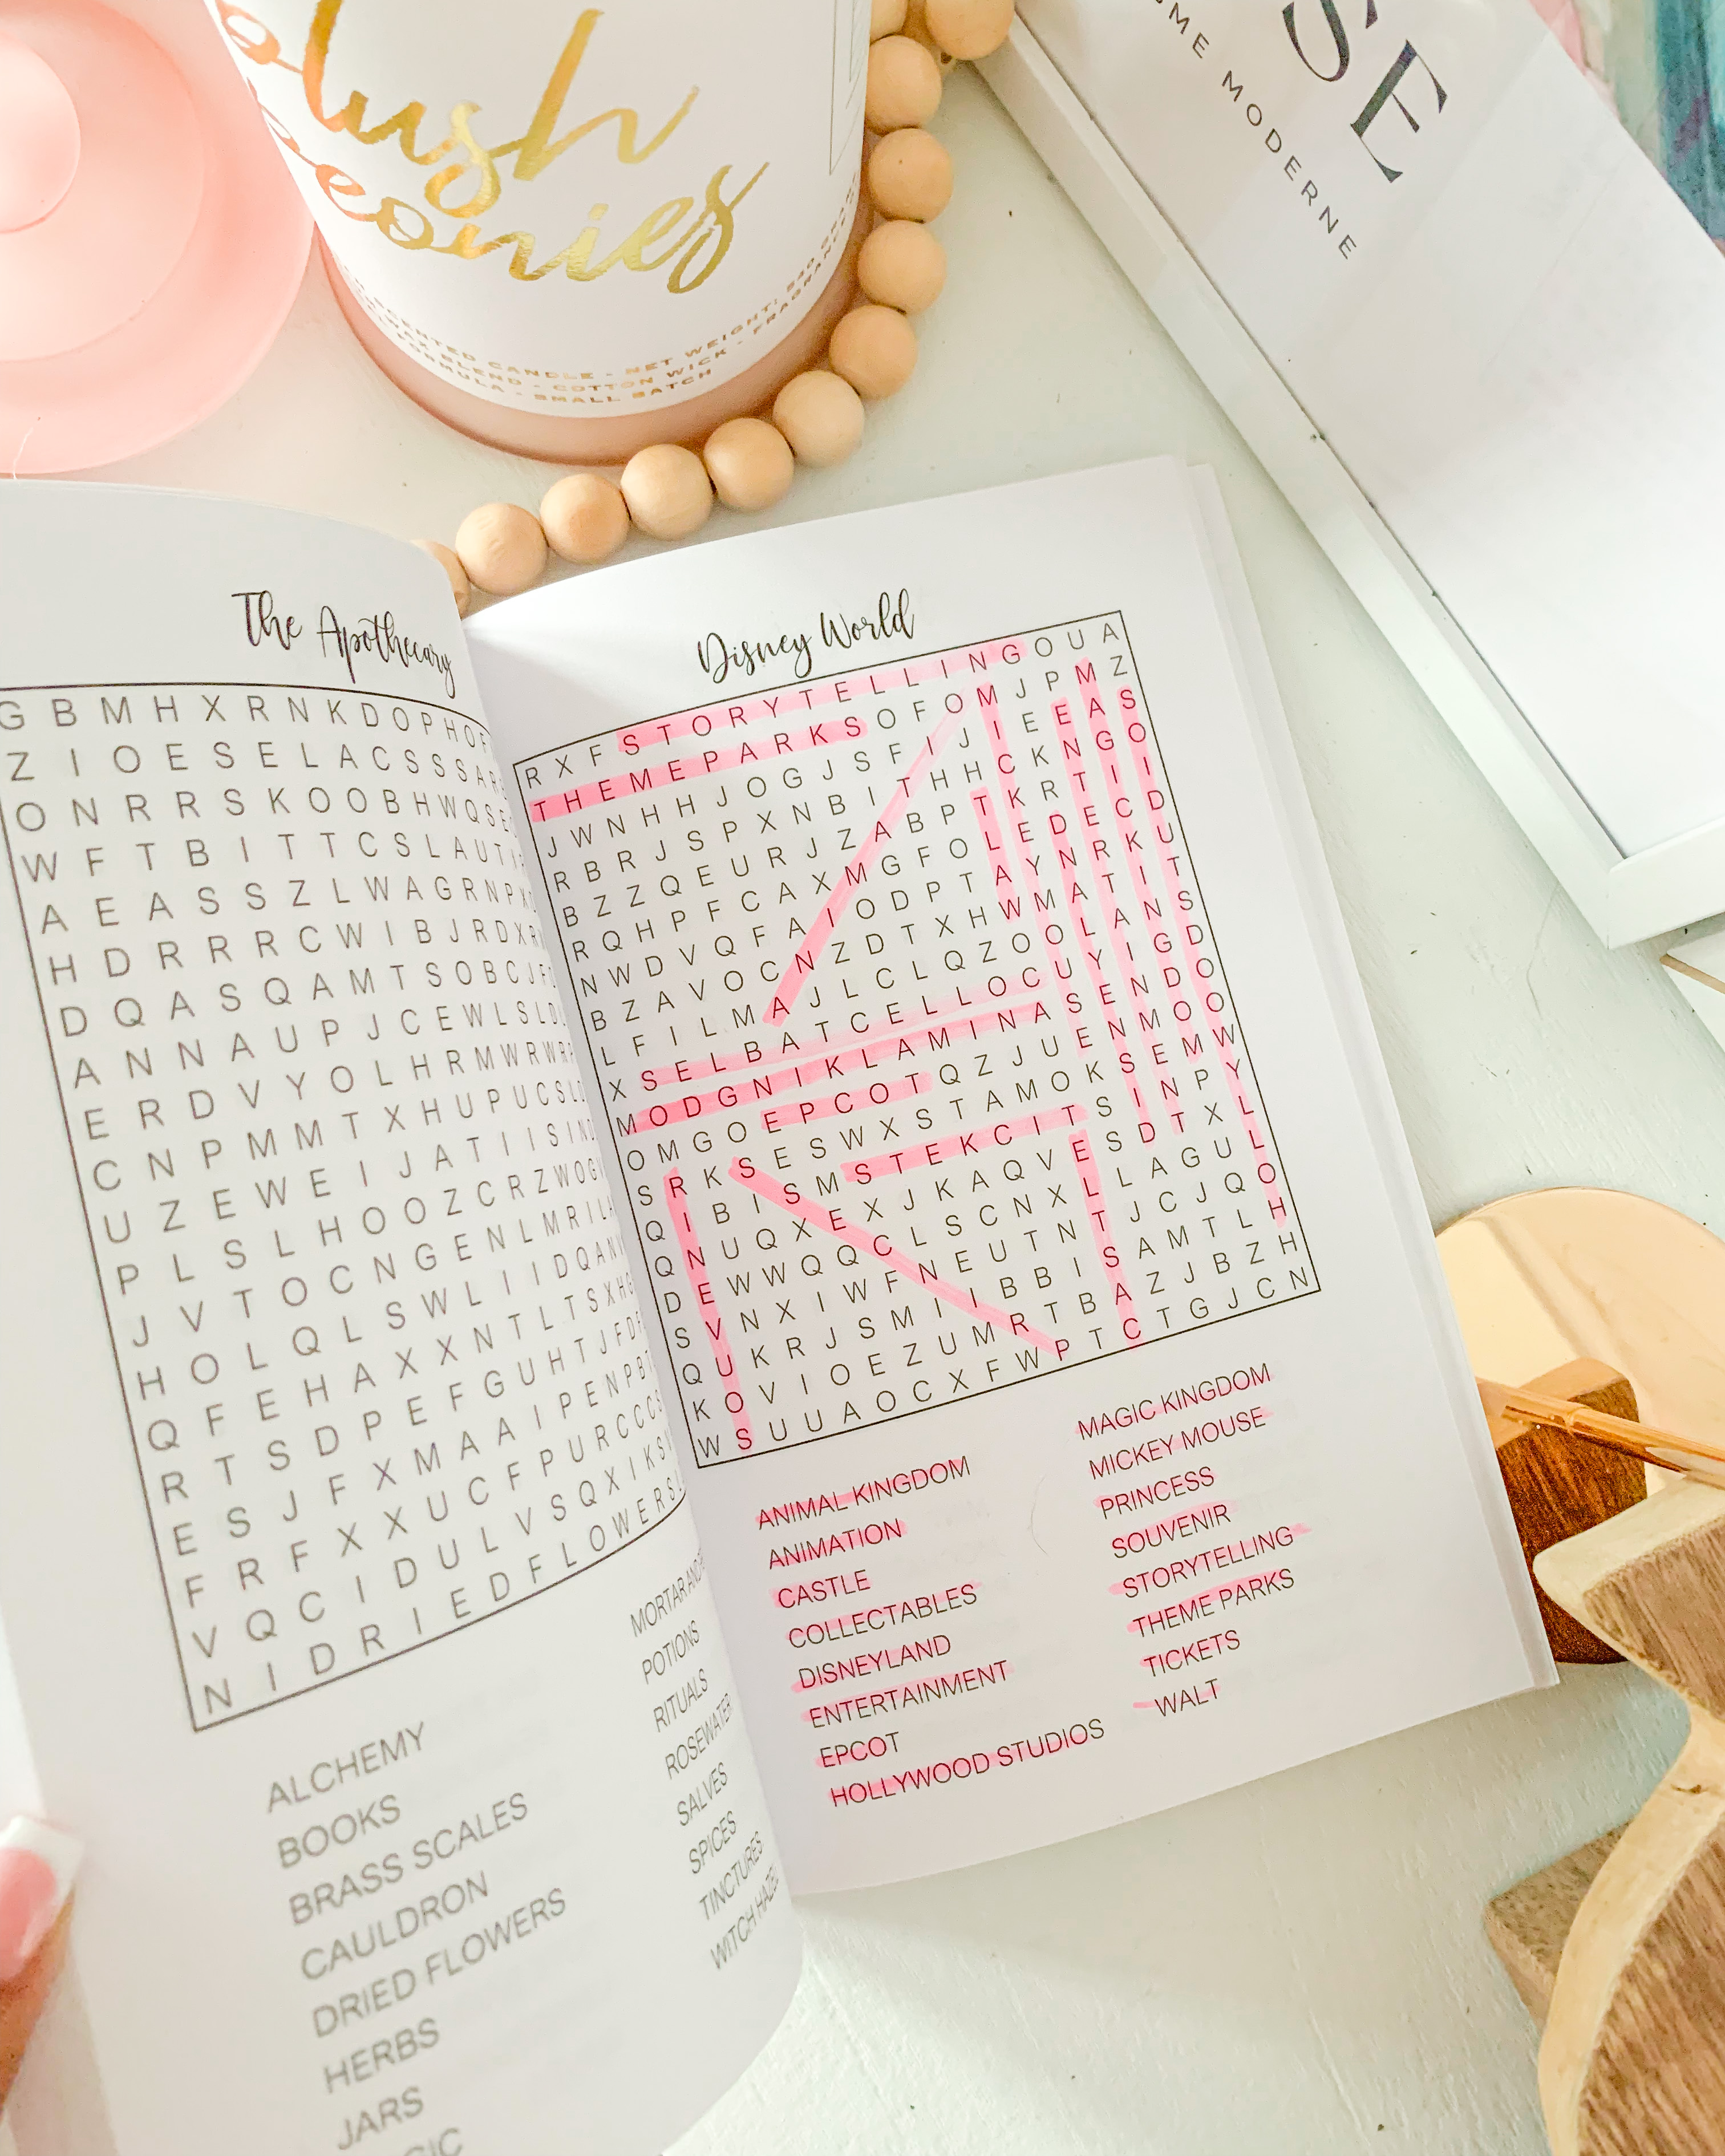 lush
eonies
SCENTED CANDLE - NET WEIGHT:
BLEND - COTTON WICK - FRAGRANCE
FORMULA - SMALL BATCH
SE
ME MODERNE
The Apothecary
G B M H X R N K D O P H O F
Z I O E S E L A C S S S A R
O N R R S K O O B H W Q S E
W F T B I T T C S L A U T
A E A S S Z L W A G R N P X
H D R R R C W I B J R D X R
D Q A S Q A M T S O B C J F
A N N A U P J C E W L S L D
E R D V Y O L H R M W R W R
C N P M M T X H U P U C S L
U Z E W E I J A T I I S I N
P L S L H O O Z C R Z W O G
J V T O C N G E N L M R I L
H O L Q L S W L I I D Q A N
Q F E H A X X N T L T S X H
R T S D P E F G U H T J F D
E S J F X M A A I P E N P B
F R F X X U C F P U R C C C
V Q C I D U L V S Q X I K S
N I D R I E D F L O W E R S
ALCHEMY
BOOKS
BRASS SCALES
CAULDRON
DRIED FLOWERS
HERBS
JARS
MORTAR AND
POTIONS
RITUALS
ROSEWATER
SALVES
SPICES
TINCTURES
WITCH HAZEL
Disney World
R X F S T O R Y T E L L I N G O U A
T H E M E P A R K S O F O M J P M Z
J W N H H J O G J S F I J I E E A S
R B R J S P X N B I T H H C K N G O
B Z Z Q E U R J Z A B P T K R T I I
R Q H P F C A X M G F O L E D E C D
N W D V Q F A I O D P T A Y N R K U
B Z A V O C N Z D T X H W M A T I T
L F I L M A J L C L Q Z O O L A N S
X S E L B A T C E L L O C U Y I G D
M O D G N I K L A M I N A S E N D O
O M G O E P C O T Q Z J U E N M O O
S R K S E S W X S T A M O K S E M W
Q I B I S M S T E K C I T S I N P Y
Q N U Q X E X J K A Q V E S D T X L
D E W W Q Q C L S C N X L L A G U L
S V N X I W F N E U T N T J C J Q O
Q U K R J S M I I B B I S A M T L H
K O V I O E Z U M R T B A Z J B Z H
W S U U A O C X F W P T C T G J C N
ANIMAL KINGDOM
ANIMATION
CASTLE
COLLECTABLES
DISNEYLAND
ENTERTAINMENT
EPCOT
HOLLYWOOD STUDIOS
MAGIC KINGDOM
MICKEY MOUSE
PRINCESS
SOUVENIR
STORYTELLING
THEME PARKS
TICKETS
WALT